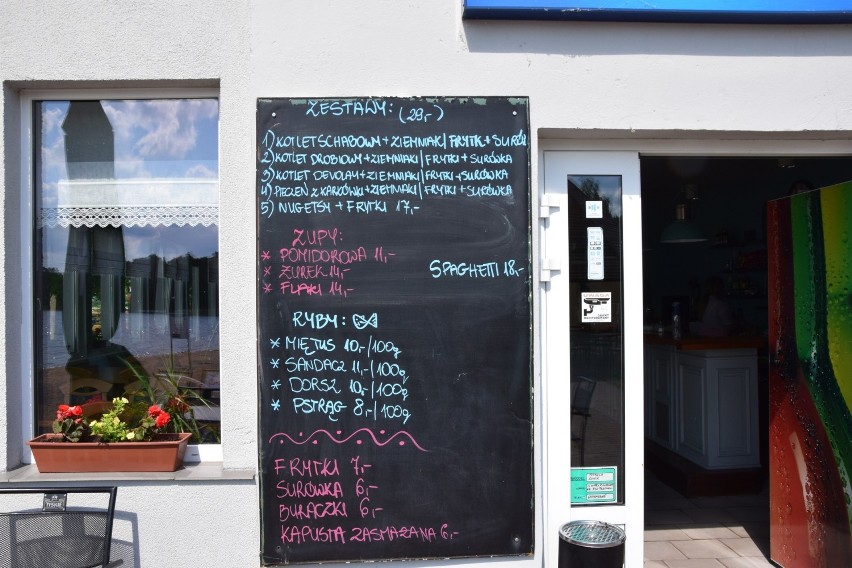 ZESTAWY: (29,-)
1) KOTLET SCHABOWY + ZIEMNIAKI / FRYTK + SURÓW
2) KOTLET DROBIOWY + ZIEMNIAKI / FRYTKI + SURÓWKA
3) KOTLET DEVOLAY + ZIEMNIAKI / FRYTKI + SURÓWKA
4) PIECZEŃ Z KARKÓWKI + ZIEMNIAKI / FRYTKI + SURÓWKA
5) NUGETSY + FRYTKI 17,-
ZUPY:
* POMIDOROWA 11,-
* ŻUREK 14,-
* FLAKI 14,-
SPAGHETTI 18,-
RYBY:
* MIĘTUS 10,-/100g
* SANDACZ 11,-/100g
* DORSZ 10,-/100g
* PSTRĄG 8,-/100g
FRYTKI 7,-
SURÓWKA 6,-
BURACZKI 6,-
KAPUSTA ZASMAŻANA 6,-
TYSKIE